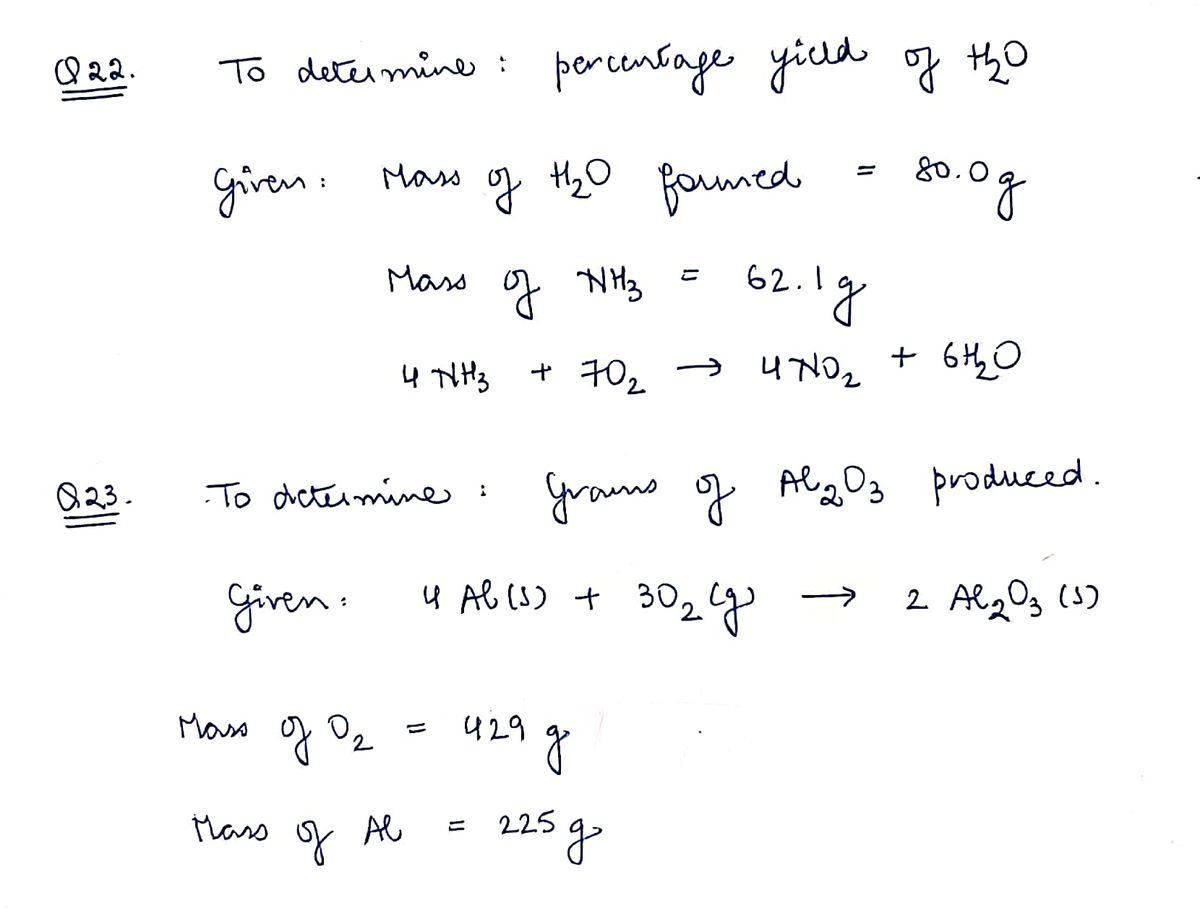 Q22. To determine : percentage yield of H₂O
Given : Mass of H₂O formed = 80.0g
Mass of NH₃ = 62.1g
4 NH₃ + 7O₂ → 4NO₂ + 6H₂O
Q23. To determine : Grams of Al₂O₃ produced.
Given : 4 Al(s) + 3O₂(g) → 2 Al₂O₃(s)
Mass of O₂ = 429 g
Mass of Al = 225g